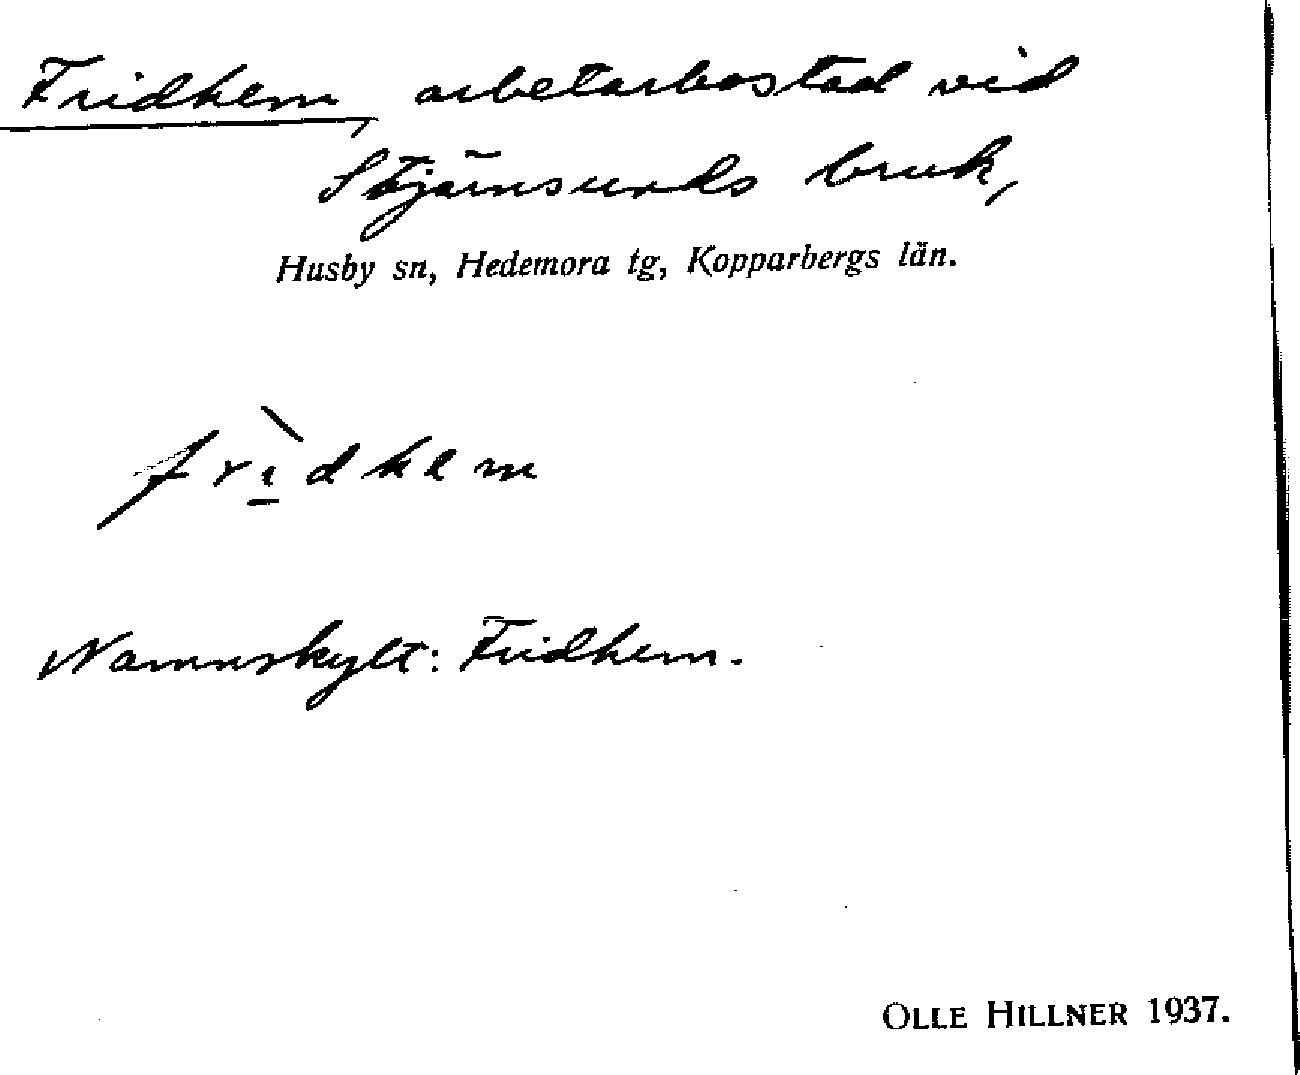 Fridhem, arbetarbostad vid
Stjärnsunds bruk,
Husby sn, Hedemora tg, Kopparbergs län.
frı̲̀dhem
Namnskylt: Fridhem.
OLLE HILLNER 1937.